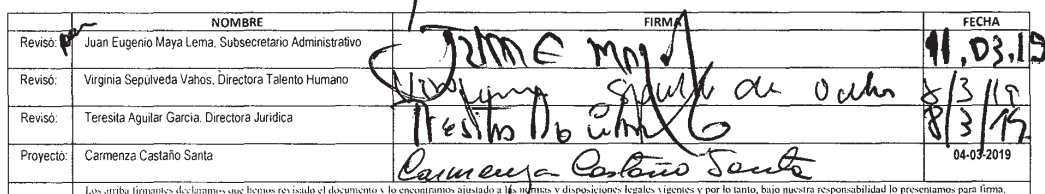 NOMBRE FIRMA FECHA
Revisó: Juan Eugenio Maya Lema, Subsecretario Administrativo 11.03.19
Revisó: Virginia Sepúlveda Vahos, Directora Talento Humano 8/3/19
Revisó: Teresita Aguilar Garcia, Directora Juridica 8/3/19
Proyectó: Carmenza Castaño Santa Carmenza Castaño Santa 04-03-2019
Los arriba firmantes declaramos que hemos revisado el documento y lo encontramos ajustado a las normas y disposiciones legales vigentes y por lo tanto, bajo nuestra responsabilidad lo presentamos para firma.